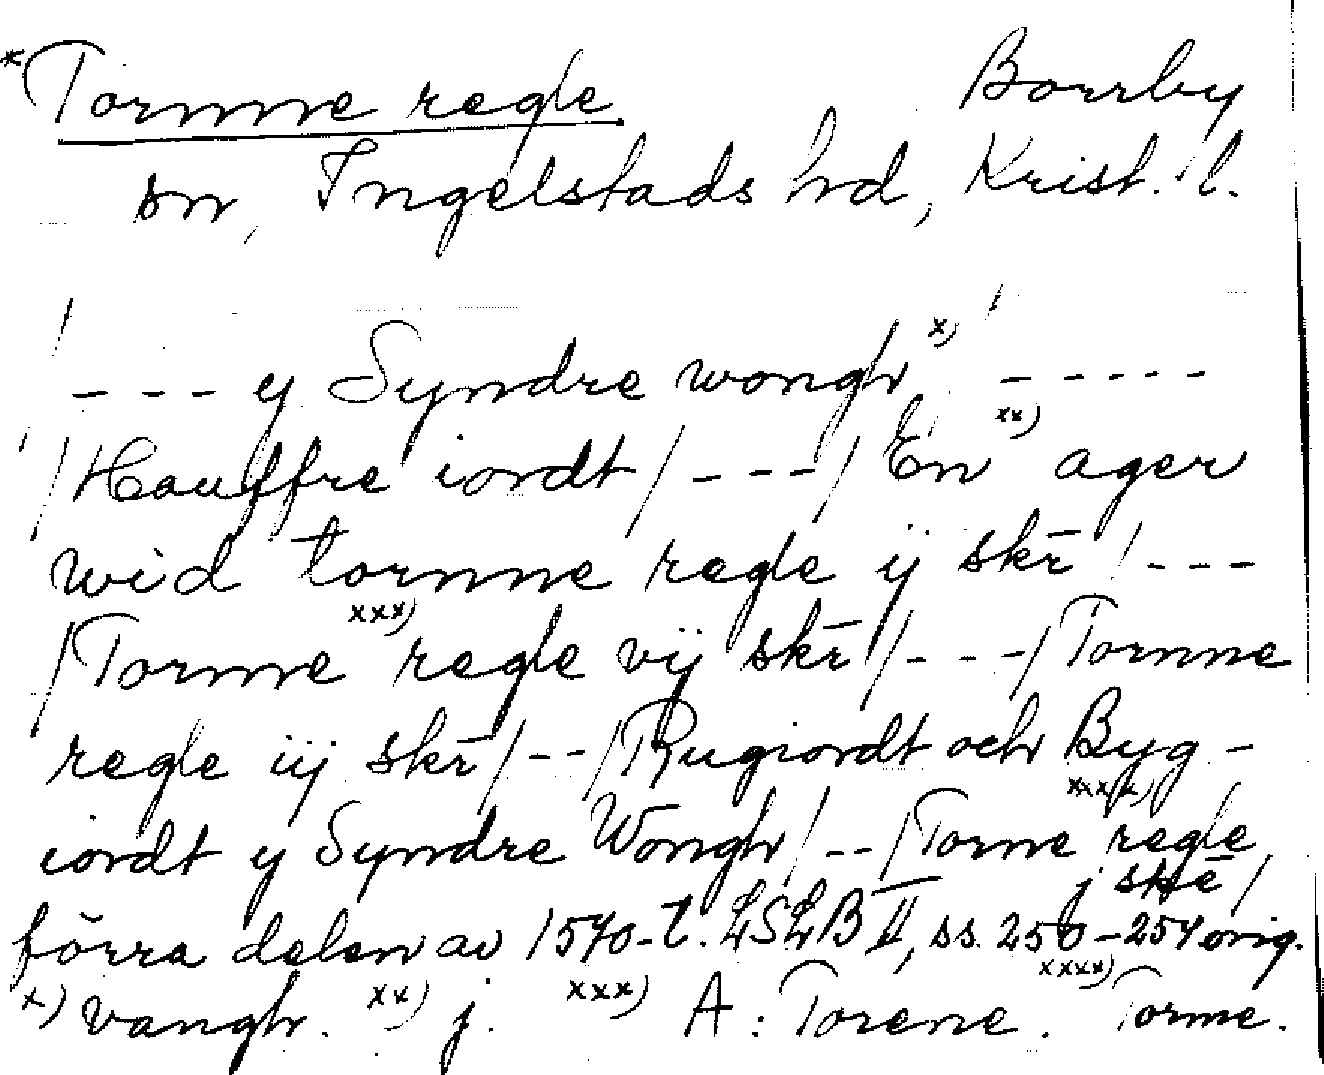 *Tornne regle Borrby
sn, Ingelstads hrd, Krist. l.
- - - y Syndre wongh x) - - - - -
/Hauffre iordt/ - - - / En xx) ager
wid tornne regle ij skr̄ / - - -
/Tornne xxx) regle vij skr̄ / - - - / Tornne
regle iij skr̄ / - - / Rugiordt och Byg -
iordt y Syndre Wongh / - - / Torne xxxx) regle
j skē /
förra delen av 1570-t. LSLB II, ss. 250-254 orig.
x) vangh. xx) j. xxx) A: Torene. xxxx) Torme.